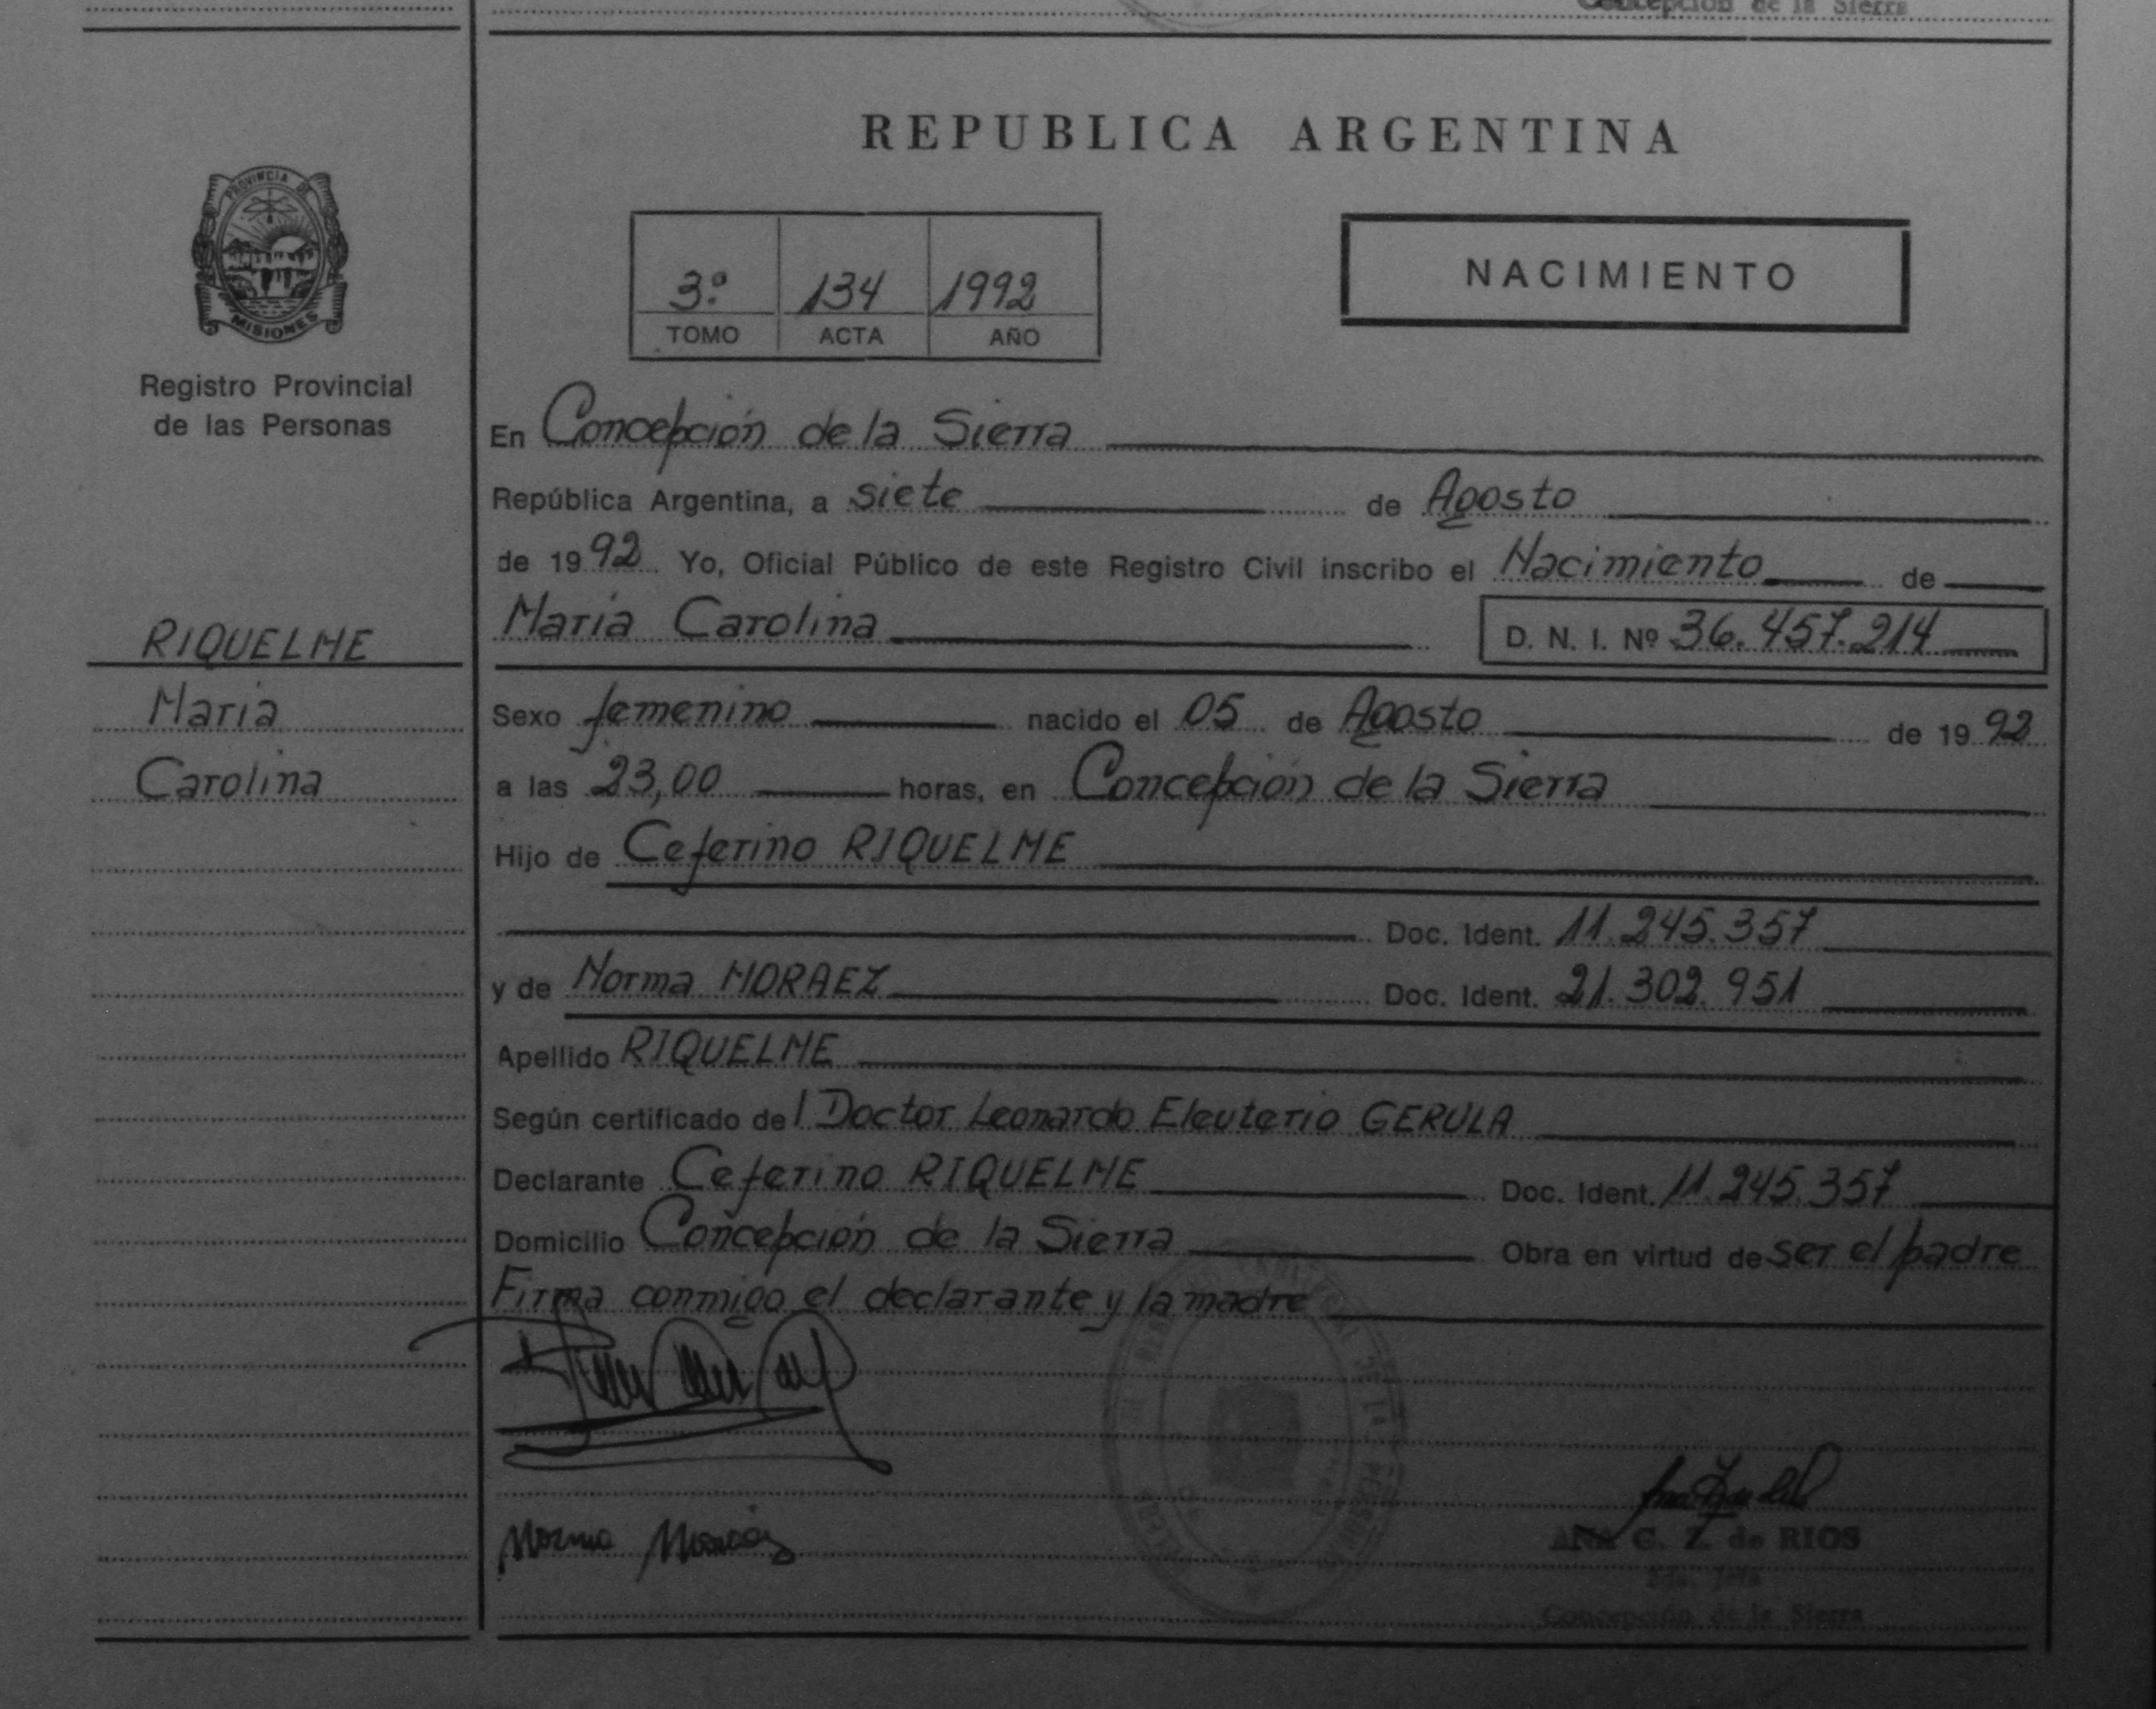 Concepción de la Sierra
REPUBLICA ARGENTINA
PROVINCIA DE
MISIONES
Registro Provincial
de las Personas
3º 134 1992
TOMO ACTA AÑO
NACIMIENTO
En Concepción de la Sierra
República Argentina, a siete de Agosto
de 1992 Yo, Oficial Público de este Registro Civil inscribo el Nacimiento de
RIQUELME
Maria
Carolina
Maria Carolina D. N. I. Nº 36.457.214
Sexo femenino nacido el 05 de Agosto de 1992
a las 23,00 horas, en Concepción de la Sierra
Hijo de Ceferino RIQUELME
Doc. Ident. 11.245.357
y de Norma MORAEZ Doc. Ident. 21.302.951
Apellido RIQUELME
Según certificado del Doctor Leonardo Eleuterio GERULA
Declarante Ceferino RIQUELME Doc. Ident. 11.245.357
Domicilio Concepción de la Sierra Obra en virtud de ser el padre
Firma conmigo el declarante y la madre
Norma Moraez
ANA G. Z. de RIOS
Concepción de la Sierra